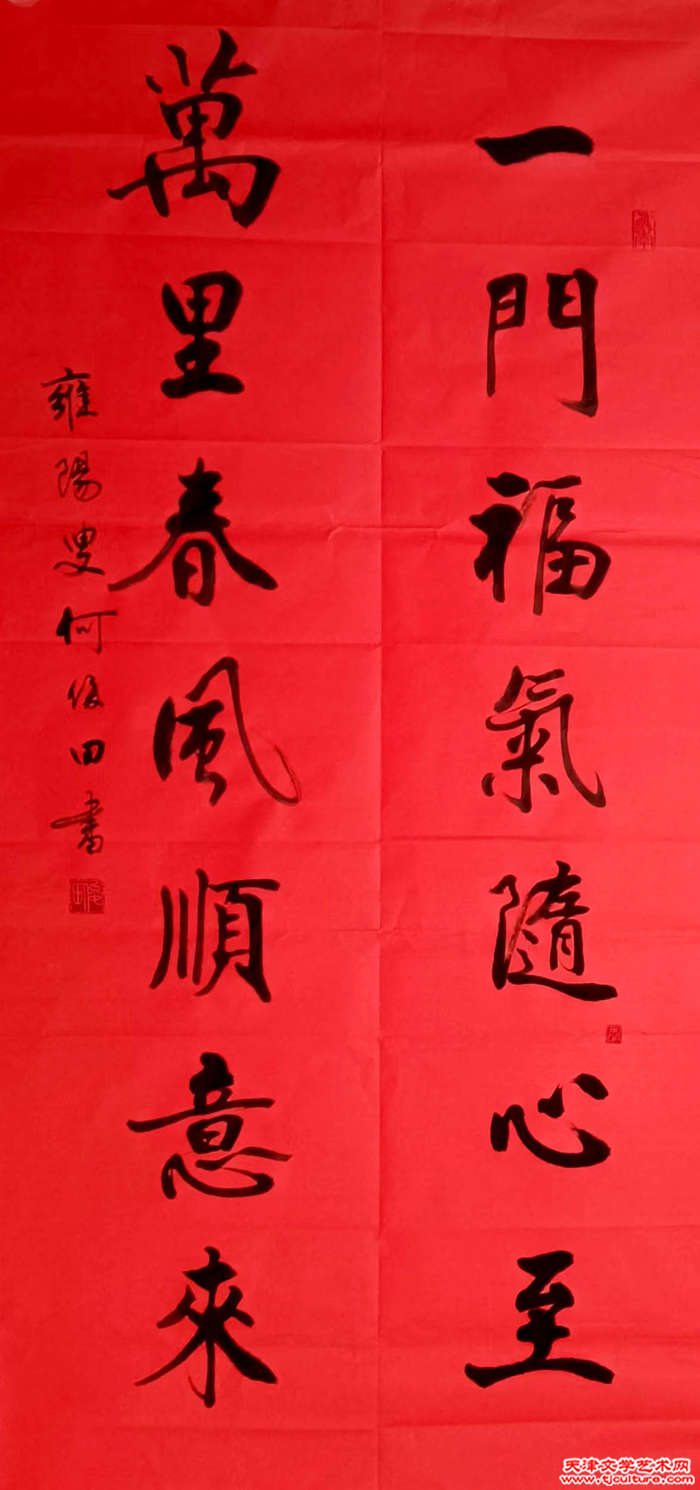 一門福氣隨心至
萬里春風順意來
雍陽叟何俊田書
天津文学艺术网
www.tjculture.com